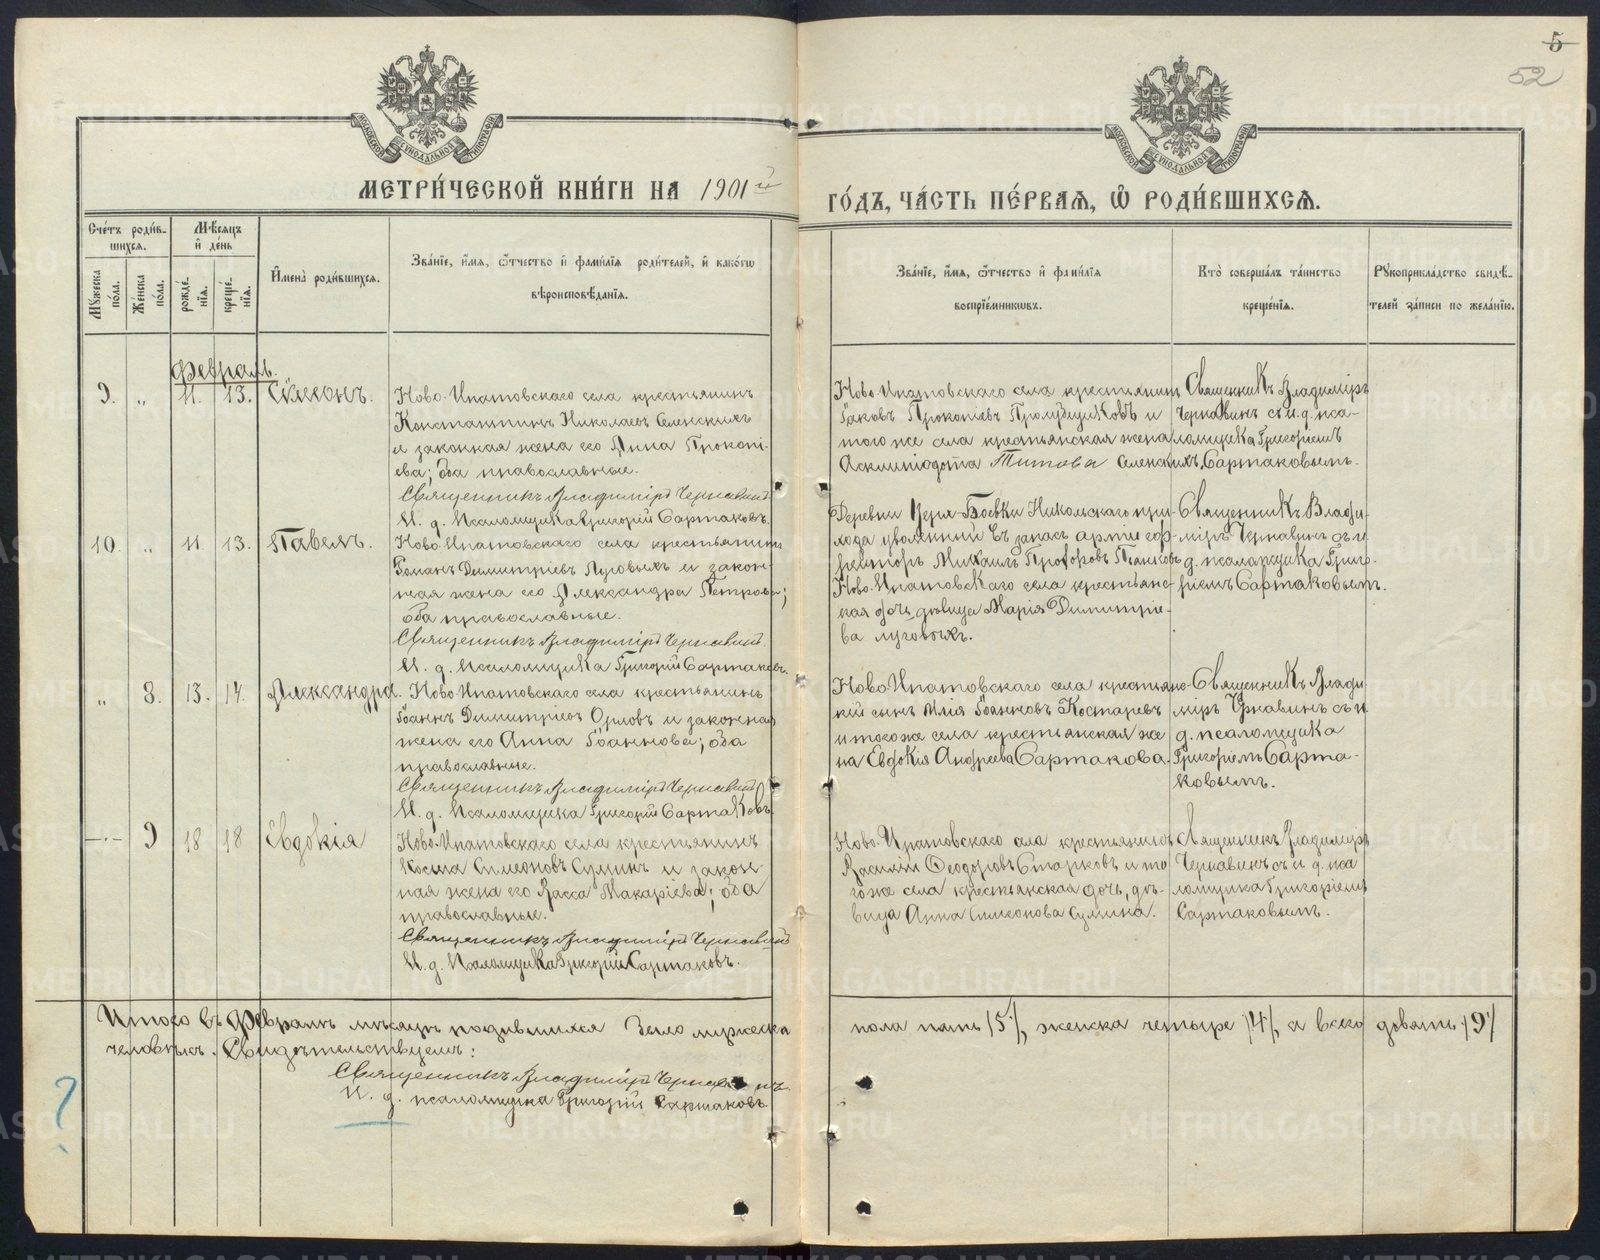 5
52
МОСКОВСКОЙ СѴНОДАЛЬНОЙ ТИПОГРАФІИ
МОСКОВСКОЙ СѴНОДАЛЬНОЙ ТИПОГРАФІИ
МЕТРИ́ЧЕСКОЙ КНИ́ГИ НА 1901 й
ГО́ДЪ, ЧА́СТЬ ПЕ́РВАЯ, Ѡ РОДИ́ВШИХСЯ.
Сче́тъ роди́в-
шихся.
Мѣ́сяцъ
и де́нь
Мꙋ́жеска по́ла.
Же́нска по́ла.
рожде́-
нїя.
креще́-
нїя.
И́мена роди́вшихся.
Зва́нїе, и́мя, ѻ҆́тчество и фами́лїя роди́телей, и како́гѡ
вѣроисповѣ́данїя.
Зва́нїе, и́мя, ѻ҆́тчество и фами́лїя
воспрїе́мникѡвъ.
Кто̀ соверша́лъ та́инство
креще́нїя.
Рꙋкоприкла́дство свидѣ́-
телей за́писи по жела́нїю.
Февраль.
9. „ 11. 13. Симонъ.
Ново-Ипатовскаго села крестьянинъ
Константинъ Николаевъ Селенскихъ
и законная жена его Анна Прокопі-
ева; оба православные.
Священникъ Владиміръ Чернавинъ
И. д. Псаломщика Григорій Сартаковъ.
Ново-Ипатовскаго села крестьянинъ
Іаковъ Прокопіевъ и
того же села крестьянская жена
Титова Селенскихъ.
Священникъ Владиміръ
Чернавинъ съ и. д. пса-
ломщика Григоріемъ
Сартаковымъ.
10. „ 11. 13. Павелъ.
Ново-Ипатовскаго села крестьянинъ
Романъ Димитріевъ Луговыхъ и закон-
ная жена его Александра Петрова;
оба православные.
Священникъ Владиміръ Чернавинъ.
И. д. Псаломщика Григорій Сартаковъ.
Деревни Боевки Никольскаго при-
хода уволенный въ запасъ арміи еф-
рейторъ Михаилъ Прохоровъ и
Ново-Ипатовскаго села крестьянс-
кая дочь, дѣвица Марія Димитріе-
ва Луговыхъ.
Священникъ Влади-
міръ Чернавинъ съ и.
д. псаломщика Григо-
ріемъ Сартаковымъ.
„ 8. 13. 14. Александра.
Ново-Ипатовскаго села крестьянинъ
Іоаннъ Димитріевъ Орловъ и законная
жена его Анна Іоаннова; оба
православные.
Священникъ Владиміръ Чернавинъ
И. д. Псаломщика Григорій Сартаковъ.
Ново-Ипатовскаго села крестьянс-
кій сынъ Илія Іоанновъ Костаревъ
и того же села крестьянская же-
на Евдокія Андреева Сартакова.
Священникъ Влади-
міръ Чернавинъ съ и.
д. псаломщика
Григоріемъ Сарта-
ковымъ.
— „ — 9 18 18 Евдокія
Ново-Ипатовскаго села крестьянинъ
Косма Симеоновъ Суминъ и закон-
ная жена его Васса Макаріева; оба
православные.
Священникъ Владиміръ Чернавинъ
И. д. Псаломщика Григорій Сартаковъ.
Ново-Ипатовскаго села крестьянинъ
Василій Ѳеодоровъ Старковъ и то-
го же села крестьянская дочь, дѣ-
вица Анна Симеонова Сумина.
Священникъ Владиміръ
Чернавинъ съ и. д. пса-
ломщика Григоріемъ
Сартаковымъ.
Итого въ Февралѣ мѣсяцѣ родившихся было мужеска
пола пять /5/, женска четыре /4/, а всего девять /9/
человѣкъ. Свидѣтельствуемъ:
Священникъ Владиміръ Чернавинъ
И. д. псаломщика Григорій Сартаковъ.
?
METRIKI.GASO-URAL.RU